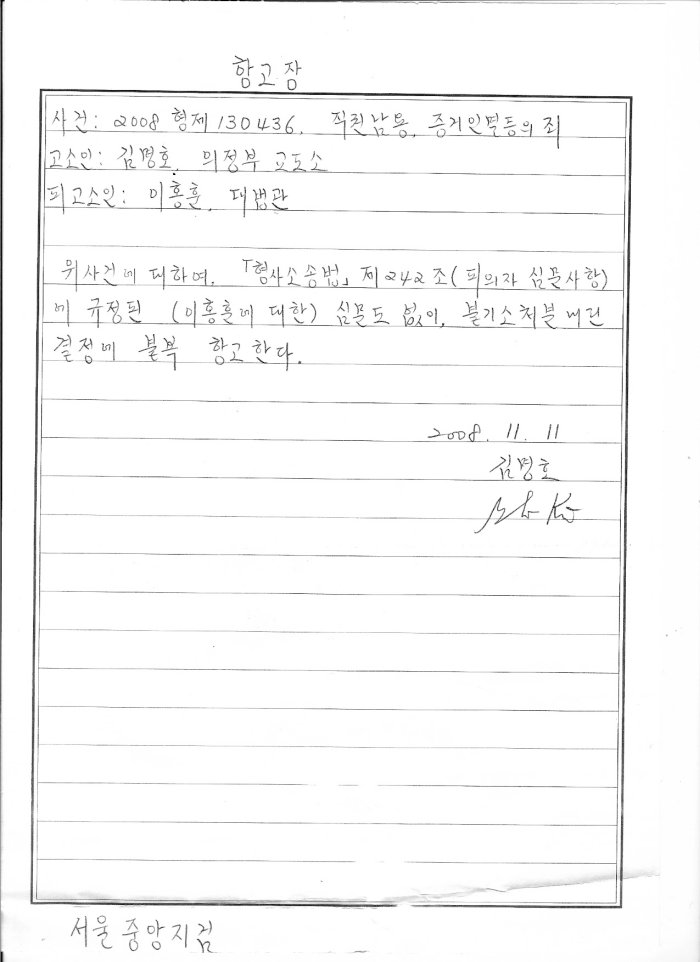 항고장
사건: 2008 형제 130436, 직권남용, 증거인멸등의 죄
고소인: 김명호, 의정부 교도소
피고소인: 이홍훈, 대법관
위사건에 대하여, 「형사소송법」 제242조(피의자 심문사항)
에 규정된 (이홍훈에 대한) 심문도 없이, 불기소처분 내린
결정에 불복 항고한다.
2008. 11. 11
김명호
서울중앙지검